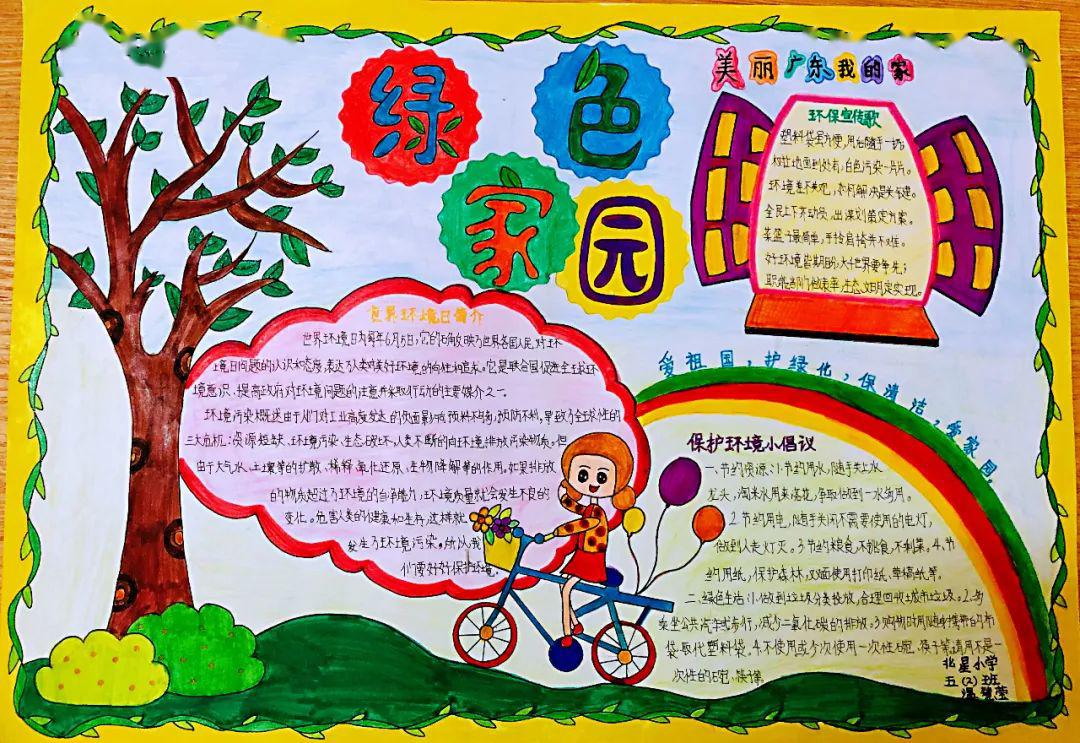 绿色
家园
美丽广东我的家
环保宣传歌
塑料袋虽方便,用后随手一扔;
白色污染一片片。
环境差不美观,
全民上下齐动员,出谋划策定方案。
菜篮子最简单,
好环境皆期盼,
生态文明定实现。
世界环境日简介
世界环境日为每年6月5日,它的确反映了世界各国人民对环
境日问题的认识和态度,表达了人类对美好环境的向往和追求。它是联合国促进全球环
境意识、提高政府对环境问题的注意并采取行动的主要媒介之一。
环境污染大概述由于人们对工业高度发达的负面影响预料不够,预防不利,导致了全球性的
三大危机:资源短缺、环境污染、生态破坏,人类不断的向环境排放污染物质。但
由于大气水、土壤等的扩散、稀释、氧化还原、生物降解等的作用。如果排放
的物质超过了环境的自净能力,环境质量就会发生不良的
变化。危害人类的健康和生存,这样就
发生了环境污染。所以我
们要好好保护环境.
爱祖国,护绿化,保清洁,爱家园。
保护环境小倡议
一、节约资源:1.节约用水,随手关上水
龙头,淘米水用来浇花,争取做到一水多用。
2.节约用电,随手关闭不需要使用的电灯,
做到人走灯灭。3.节约粮食,不挑食,不剩菜。4.节
约用纸,保护森林,双面使用打印纸、草稿纸等。
二、绿色生活:1.做到垃圾分类投放,合理回收城市垃圾。2.多
乘坐公共汽车或步行,减少二氧化碳的排放。3.购物时用随身携带的布
袋取代塑料袋。4.不使用或少次使用一次性碗、筷子等,请用不是一
次性的碗、筷等。
北星小学
五(2)班